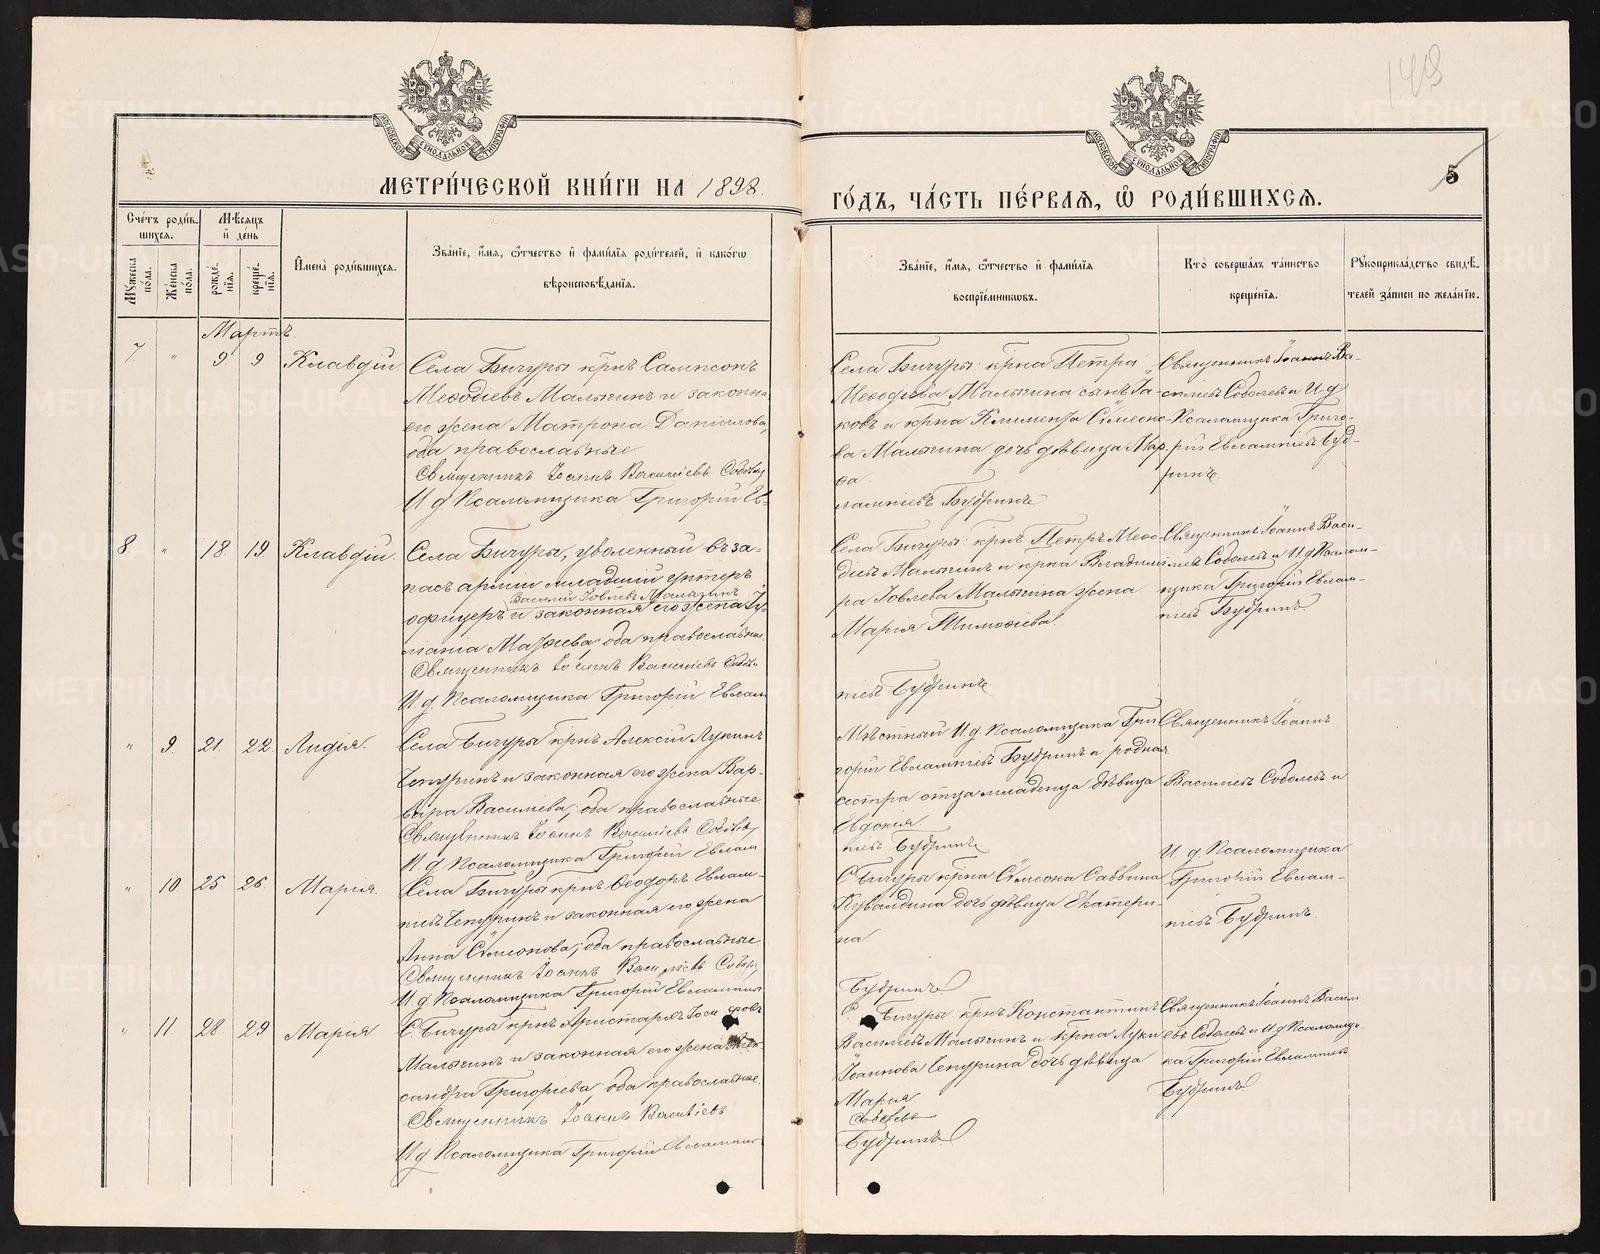 149
МОСКОВСКОЙ СѴНОДАЛЬНОЙ ТИПОГРАФІИ
МОСКОВСКОЙ СѴНОДАЛЬНОЙ ТИПОГРАФІИ
5
МЕТРИ́ЧЕСКОЙ КНИ́ГИ НА 1898.
ГО́ДЪ, ЧА́СТЬ ПЕ́РВАЯ, Ѽ РОДИ́ВШИХСЯ.
Сче́тъ роди́в-
шихся.
Му́жеска по́ла.
Же́нска по́ла.
Мѣ́сяцъ
и де́нь
рожде́-
нїя.
креще́-
нїя.
Имена̀ роди́вшихся.
Зва́нїе, и́мя, ѻ҆́тчество и фами́лїя роди́телей, и како́гѡ
вѣроисповѣ́данїя.
Зва́нїе, и́мя, ѻ҆́тчество и фами́лїя
воспрїе́мникѡвъ.
Кто̀ соверша́лъ та́инство
креще́нїя.
Рꙋкоприкла́дство свидѣ́-
телей за́писи по жела́нїю.
Мартъ
7 " 9. 9 Клавдій.
Села Бичуры кр̃нъ Сампсонъ
Меѳодіевъ Малыгинъ и законна
его жена Матрона Даніилова,
оба православные
Священникъ Іоаннъ Васильевъ Соболевъ
И д Псаломщика Григорій Ев-
Села Бичуры кр̃на Петра
Меѳодіева Малыгина сынъ Іа-
ковъ и кр̃на Климента Сѵмеоно-
ва Малыгина дочь дѣвица Вар-
ва
лампіевъ Будринъ
Священникъ Іоаннъ Ва-
силіевъ Соболевъ и И д
Псаломщика Григо-
рій Евлампіевъ Буд-
ринъ.
8 " 18 19 Клавдій.
Села Бичуры, уволенный въ за-
пасъ арміи младшій унтеръ
Василій Іовлевъ Малыгинъ
офицеръ и законная его жена Іу-
ліанія Маѳіева, оба православные
Священникъ Іоаннъ Василіевъ Соболевъ
И. д. Псаломщика Григорій Евлам
Села Бичуры кр̃нъ Петръ Меѳо
діевъ Малыгинъ и кр̃на Владимі
ра Іовлева Малыгина жена
Марія Тимоѳіева
піевъ Будринъ
Священникъ Іоаннъ Васи-
ліевъ Соболевъ и И д Псалом-
щика Григорій Евлам-
піевъ Будринъ
" 9. 21. 22. Лидія.
Села Бичуры кр̃нъ Алексій Лукинъ
Чепуринъ и законная его жена Вар-
вара Василіева, оба православные.
Священникъ Іоаннъ Василіевъ Соболевъ
И д Псаломщика Григорій Евлам
Мѣстный И д Псаломщика Гри
горій Евлампіевъ Будринъ и родная
сестра отца младенца дѣвица
Евдокія.
піевъ Будринъ
Священникъ Іоаннъ
Василіевъ Соболевъ и
И. д. Псаломщика
Григорій Евлам-
піевъ Будринъ.
" 10 25 26 Марія.
Села Бичуры кр̃нъ Ѳеодоръ Евлам-
піевъ Чепуринъ и законная его жена
Анна Сѵмеонова, оба православные
Священникъ Іоаннъ Василіевъ Соболевъ
И д Псаломщика Григорій Евлампіевъ
С Бичуры кр̃на Сѵмеона Саввина
Кувалдина дочь дѣвица Екатери-
на
Будринъ
" 11 28 29 Марія
С. Бичуры кр̃нъ Аристархъ Іосифовъ
Малыгинъ и законная его жена Алек
сандра Григоріева, оба православные.
Священникъ Іоаннъ Василіевъ
И д Псаломщика Григорій Евлампіевъ
С. Бичуры кр̃нъ Константинъ
Василіевъ Малыгинъ и кр̃на Луки
Іоаннова Чепурина дочь дѣвица
Марія
Соболевъ
Будринъ
Священникъ Іоаннъ Васили
евъ Соболевъ и И д Псаломщ.
ка Григорій Евлампіевъ
Будринъ
METRIKI.GASO-URAL.RU